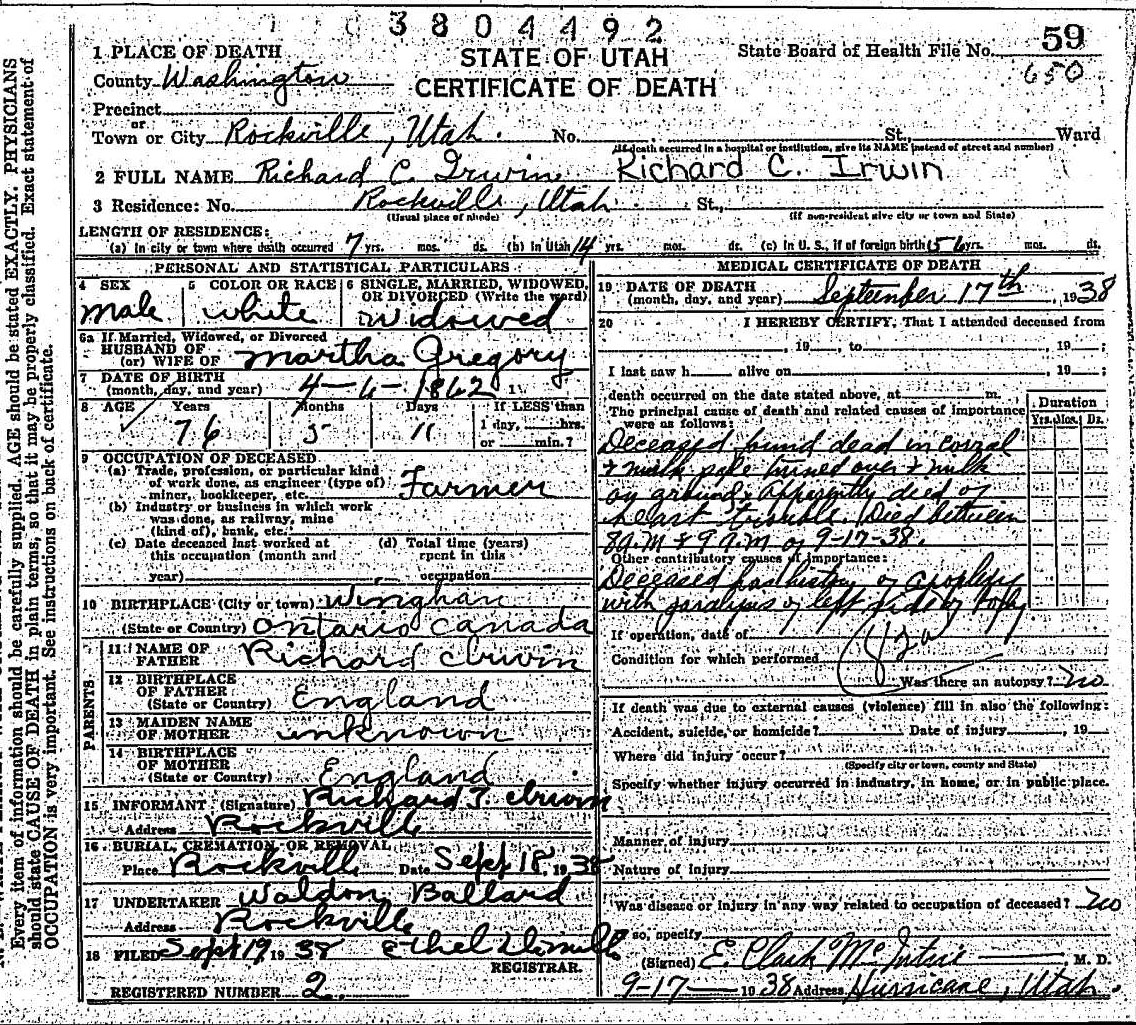 3804492
STATE OF UTAH
CERTIFICATE OF DEATH
State Board of Health File No. 59
650
1 PLACE OF DEATH
County Washington
Precinct
or
Town or City Rockville, Utah. No. St., Ward
(If death occurred in a hospital or institution, give its NAME instead of street and number)
2 FULL NAME Richard C. Irwin Richard C. Irwin
3 Residence: No. Rockville, Utah. St.,
(Usual place of abode) (If non-resident give city or town and State)
LENGTH OF RESIDENCE:
(a) In city or town where death occurred 7 yrs. mos. ds. (b) In Utah 14 yrs. mos. ds. (c) In U. S., if of foreign birth 56 yrs. mos. ds.
PERSONAL AND STATISTICAL PARTICULARS
4 SEX 5 COLOR OR RACE 6 SINGLE, MARRIED, WIDOWED, OR DIVORCED (Write the word)
male white widowed
6a If Married, Widowed, or Divorced
HUSBAND OF
(or) WIFE OF Martha Gregory
7 DATE OF BIRTH
(month, day, and year) 4-6-1862
8 AGE Years Months Days If LESS than
1 day, hrs.
or min.?
76 5 11
9 OCCUPATION OF DECEASED
(a) Trade, profession, or particular kind
of work done, as engineer (type of)
miner, bookkeeper, etc. Farmer
(b) Industry or business in which work
was done, as railway, mine
(kind of), bank, etc.
(c) Date deceased last worked at
this occupation (month and
year)
(d) Total time (years)
spent in this
occupation
10 BIRTHPLACE (City or town) Winghan
(State or Country) Ontario Canada
PARENTS
11 NAME OF
FATHER Richard Irwin
12 BIRTHPLACE
OF FATHER
(State or Country) England
13 MAIDEN NAME
OF MOTHER unknown
14 BIRTHPLACE
OF MOTHER
(State or Country) England
15 INFORMANT (Signature) Richard T. Irwin
Address Rockville
16 BURIAL, CREMATION OR REMOVAL
Place Rockville Date Sept 18, 1938
17 UNDERTAKER Waldon Ballard
Address Rockville
18 FILED Sept 19 1938 Ethel
REGISTRAR.
REGISTERED NUMBER 2.
MEDICAL CERTIFICATE OF DEATH
19 DATE OF DEATH
(month, day, and year) September 17th, 1938
20 I HEREBY CERTIFY, That I attended deceased from
, 19 , to , 19 ;
I last saw h alive on , 19 ;
death occurred on the date stated above, at m.
The principal cause of death and related causes of importance
were as follows:
Duration
Yrs. Mos. Ds.
Deceased found dead in corral
& milk pale turned over & milk
on ground & Apparently died of
heart trouble. Died between
8 A.M & 9 A.M of 9-17-38.
Other contributory causes of importance:
Deceased has history of apoplexy
with paralysis of left side of body
If operation, date of
Condition for which performed
Was there an autopsy? no
If death was due to external causes (violence) fill in also the following:
Accident, suicide, or homicide? Date of injury , 19
Where did injury occur?
(Specify city or town, county and State)
Specify whether injury occurred in industry, in home, or in public place.
Manner of injury
Nature of injury
Was disease or injury in any way related to occupation of deceased? no
so, specify
(Signed) E. Clark McIntire, M. D.
9-17- 1938 Address Hurricane, Utah.
Every item of information should be carefully supplied. AGE should be stated EXACTLY. PHYSICIANS
should state CAUSE OF DEATH in plain terms, so that it may be properly classified. Exact statement of
OCCUPATION is very important. See instructions on back of certificate.